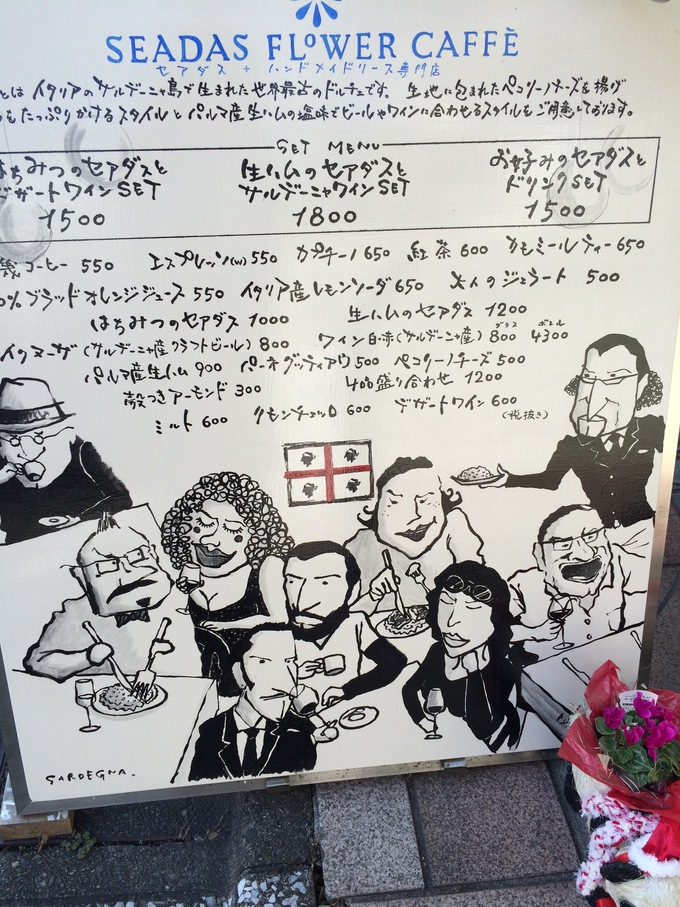 SEADAS FLOWER CAFFÈ
セアダス + ハンドメイドリース専門店
とは イタリアのサルデーニャ島で生まれた世界最古のドルチェです。 生地に包まれたペコリーノチーズを揚げ
をたっぷりかけるスタイルと パルマ産生ハムの塩味でビールやワインに合わせるスタイルもご用意しております。
SET MENU
はちみつのセアダスと
デザートワインSET
1500
生ハムのセアダスと
サルデーニャワインSET
1800
お好みのセアダスと
ドリンクSET
1500
機コーヒー 550 エスプレッソ(W) 550 カプチーノ 650 紅茶 600 カモミールティー 650
0%ブラッドオレンジジュース 550 イタリア産レモンソーダ 650 大人のジェラート 500
はちみつのセアダス 1000 生ハムのセアダス 1200
イクヌーザ(サルデーニャ産クラフトビール) 800 ワイン白・赤(サルデーニャ産) グラス 800 ボトル 4300
パルマ産生ハム 900 パーネグッティアウ 500 ペコリーノチーズ 500
殻つきアーモンド 300 盛り合わせ 1200
ミルト 600 リモンチェッロ 600 デザートワイン 600
(税抜き)
SARDEGNA.